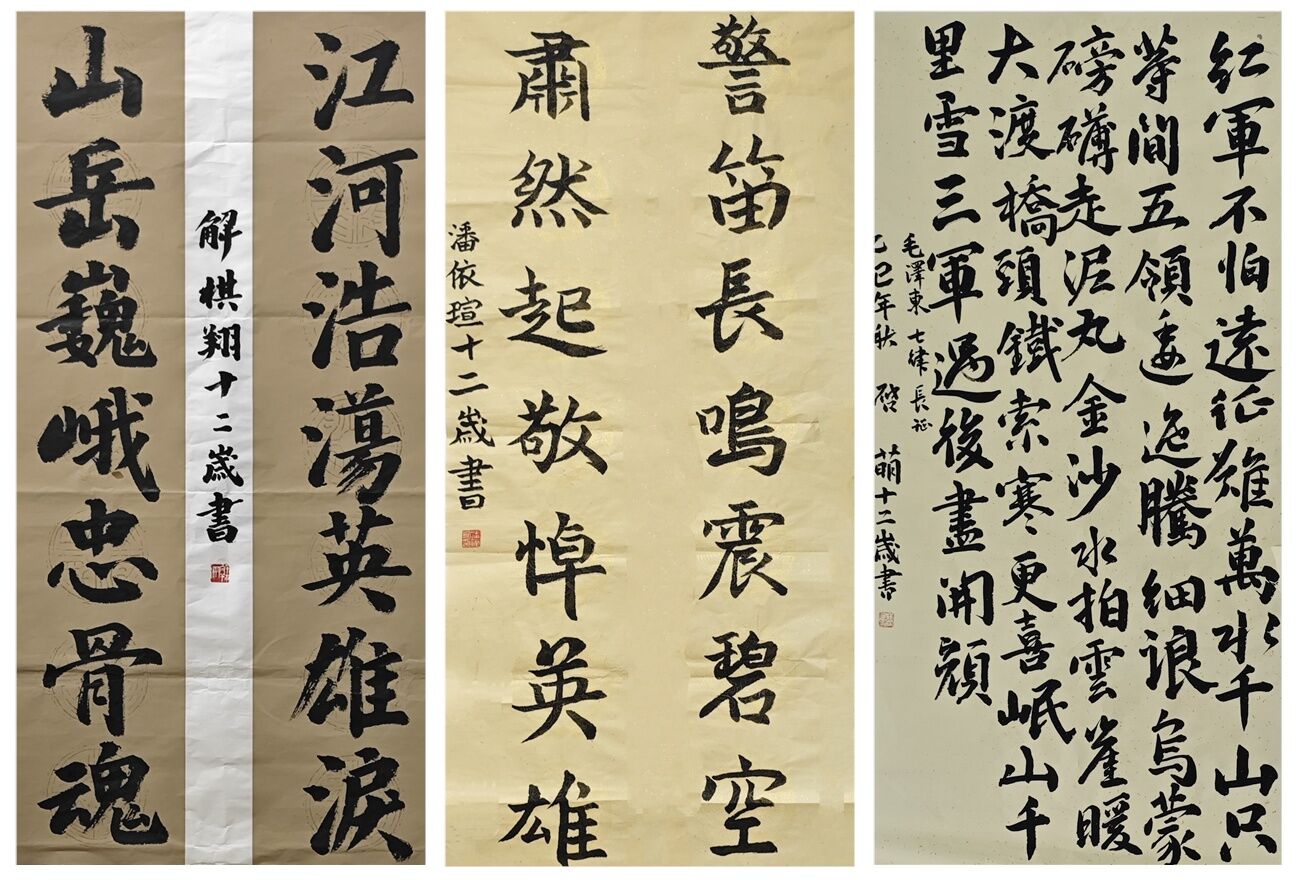 江河浩蕩英雄淚
山岳巍峨忠骨魂
解棋翔十二歲書
警笛長鳴震碧空
肅然起敬悼英雄
潘依瑄十二歲書
紅軍不怕遠征難萬水千山只
等間五領逶迤騰細浪烏蒙
磅礴走泥丸金沙水拍雲崖暖
大渡橋頭鐵索寒更喜岷山千
里雪三軍過後盡開顏
毛澤東七律長征
乙巳年秋 啓萌十二歲書